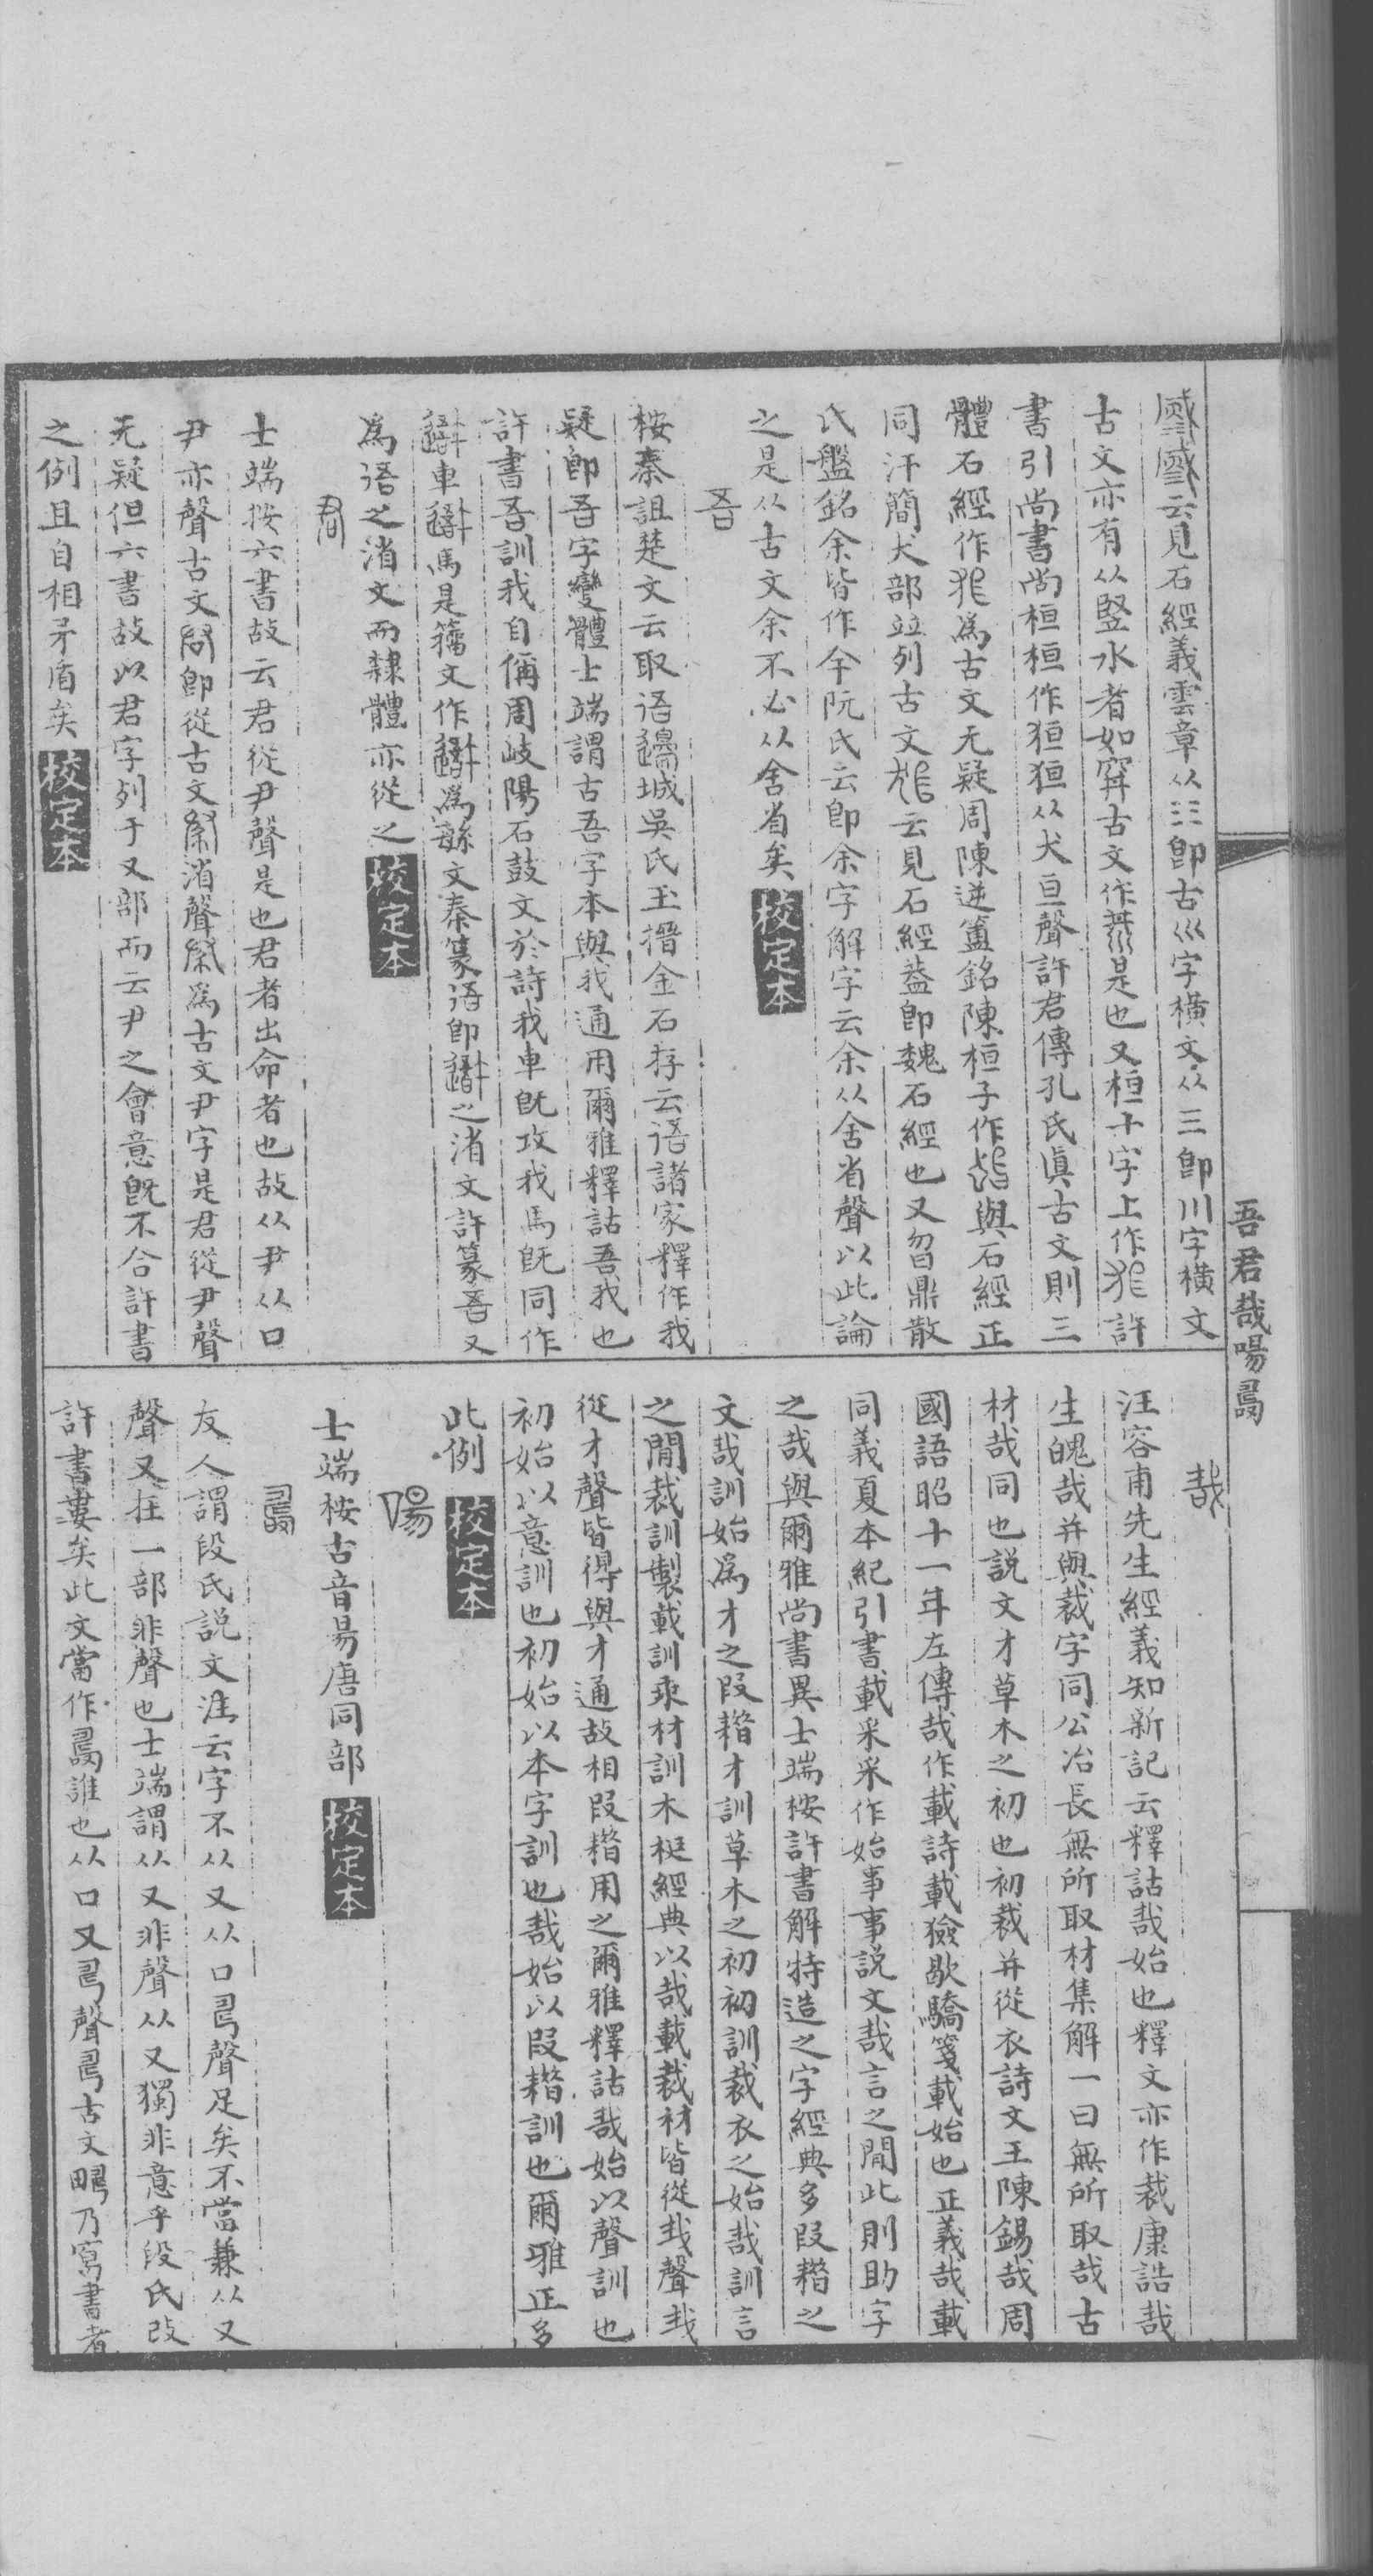 云見石經義雲章从三卽古巛字橫文从三卽川字橫文
古文亦有从竪水者如穽古文作是也又桓十字上作狟許
書引尚書尚桓桓作狟狟从犬亘聲許君傳孔氏眞古文則三
體石經作爲古文无疑周陳逆簠銘陳桓子作與石經正
同汗簡犬部竝列古文云見石經葢卽魏石經也又曶鼎散
氏盤銘余皆作余阮氏云卽余字解字云余从舍省聲以此論
之是从古文余不必从舍省矣校定本
吾
桉秦詛楚文云取䢩邊城吳氏玉搢金石存云䢩諸家釋作我
疑卽吾字變體士端謂古吾字本與我通用爾雅釋詁吾我也
許書吾訓我自偁周岐陽石鼓文於詩我車旣攻我馬旣同作
車馬是籒文作爲緐文秦篆䢩卽之渻文許篆吾又
爲䢩之渻文而隸體亦從之校定本
君
士端按六書故云君從尹聲是也君者出命者也故从尹从口
尹亦聲古文卽從古文渻聲爲古文尹字是君從尹聲
无疑但六書故以君字列于又部而云尹之會意旣不合許書
之例且自相矛盾矣校定本
吾君哉喝㠱
哉
汪容甫先生經義知新記云釋詁哉始也釋文亦作裁康誥哉
生魄哉并與裁字同公冶長無所取材集解一曰無所取哉古
材哉同也説文才草木之初也初裁并從衣詩文王陳錫哉周
國語昭十一年左傳哉作載詩載獫歇驕箋載始也正義哉載
同義夏本紀引書載采采作始事事説文哉言之閒此則助字
之哉與爾雅尚書異士端桉許書解特造之字經典多叚藉之
文哉訓始爲才之叚藉才訓草木之初初訓裁衣之始哉訓言
之閒裁訓製載訓乘材訓木梃經典以哉載裁材皆從𢦏聲𢦏
從才聲皆得與才通故相叚藉用之爾雅釋詁哉始以聲訓也
初始以意訓也初始以本字訓也哉始以叚藉訓也爾雅正多
此例校定本
啺
士端桉古音昜唐同部校定本
友人謂段氏説文注云字不从又从口聲足矣不當兼从又
聲又在一部非聲也士端謂从又非聲从又獨非意乎段氏改
許書婁矣此文當作誰也从口又聲古文乃寫書者